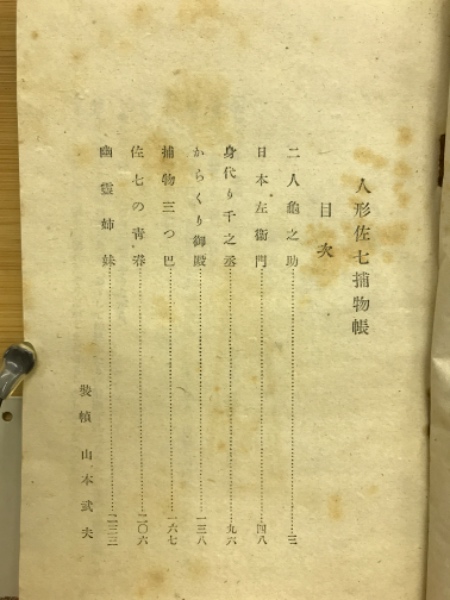 人形佐七捕物帳
目次
二人亀之助……三
日本左衛門……四八
身代り千之丞……九六
からくり御殿……一三八
捕物三つ巴……一六七
佐七の青春……二〇六
幽霊姉妹……二三三
装幀 山本武夫